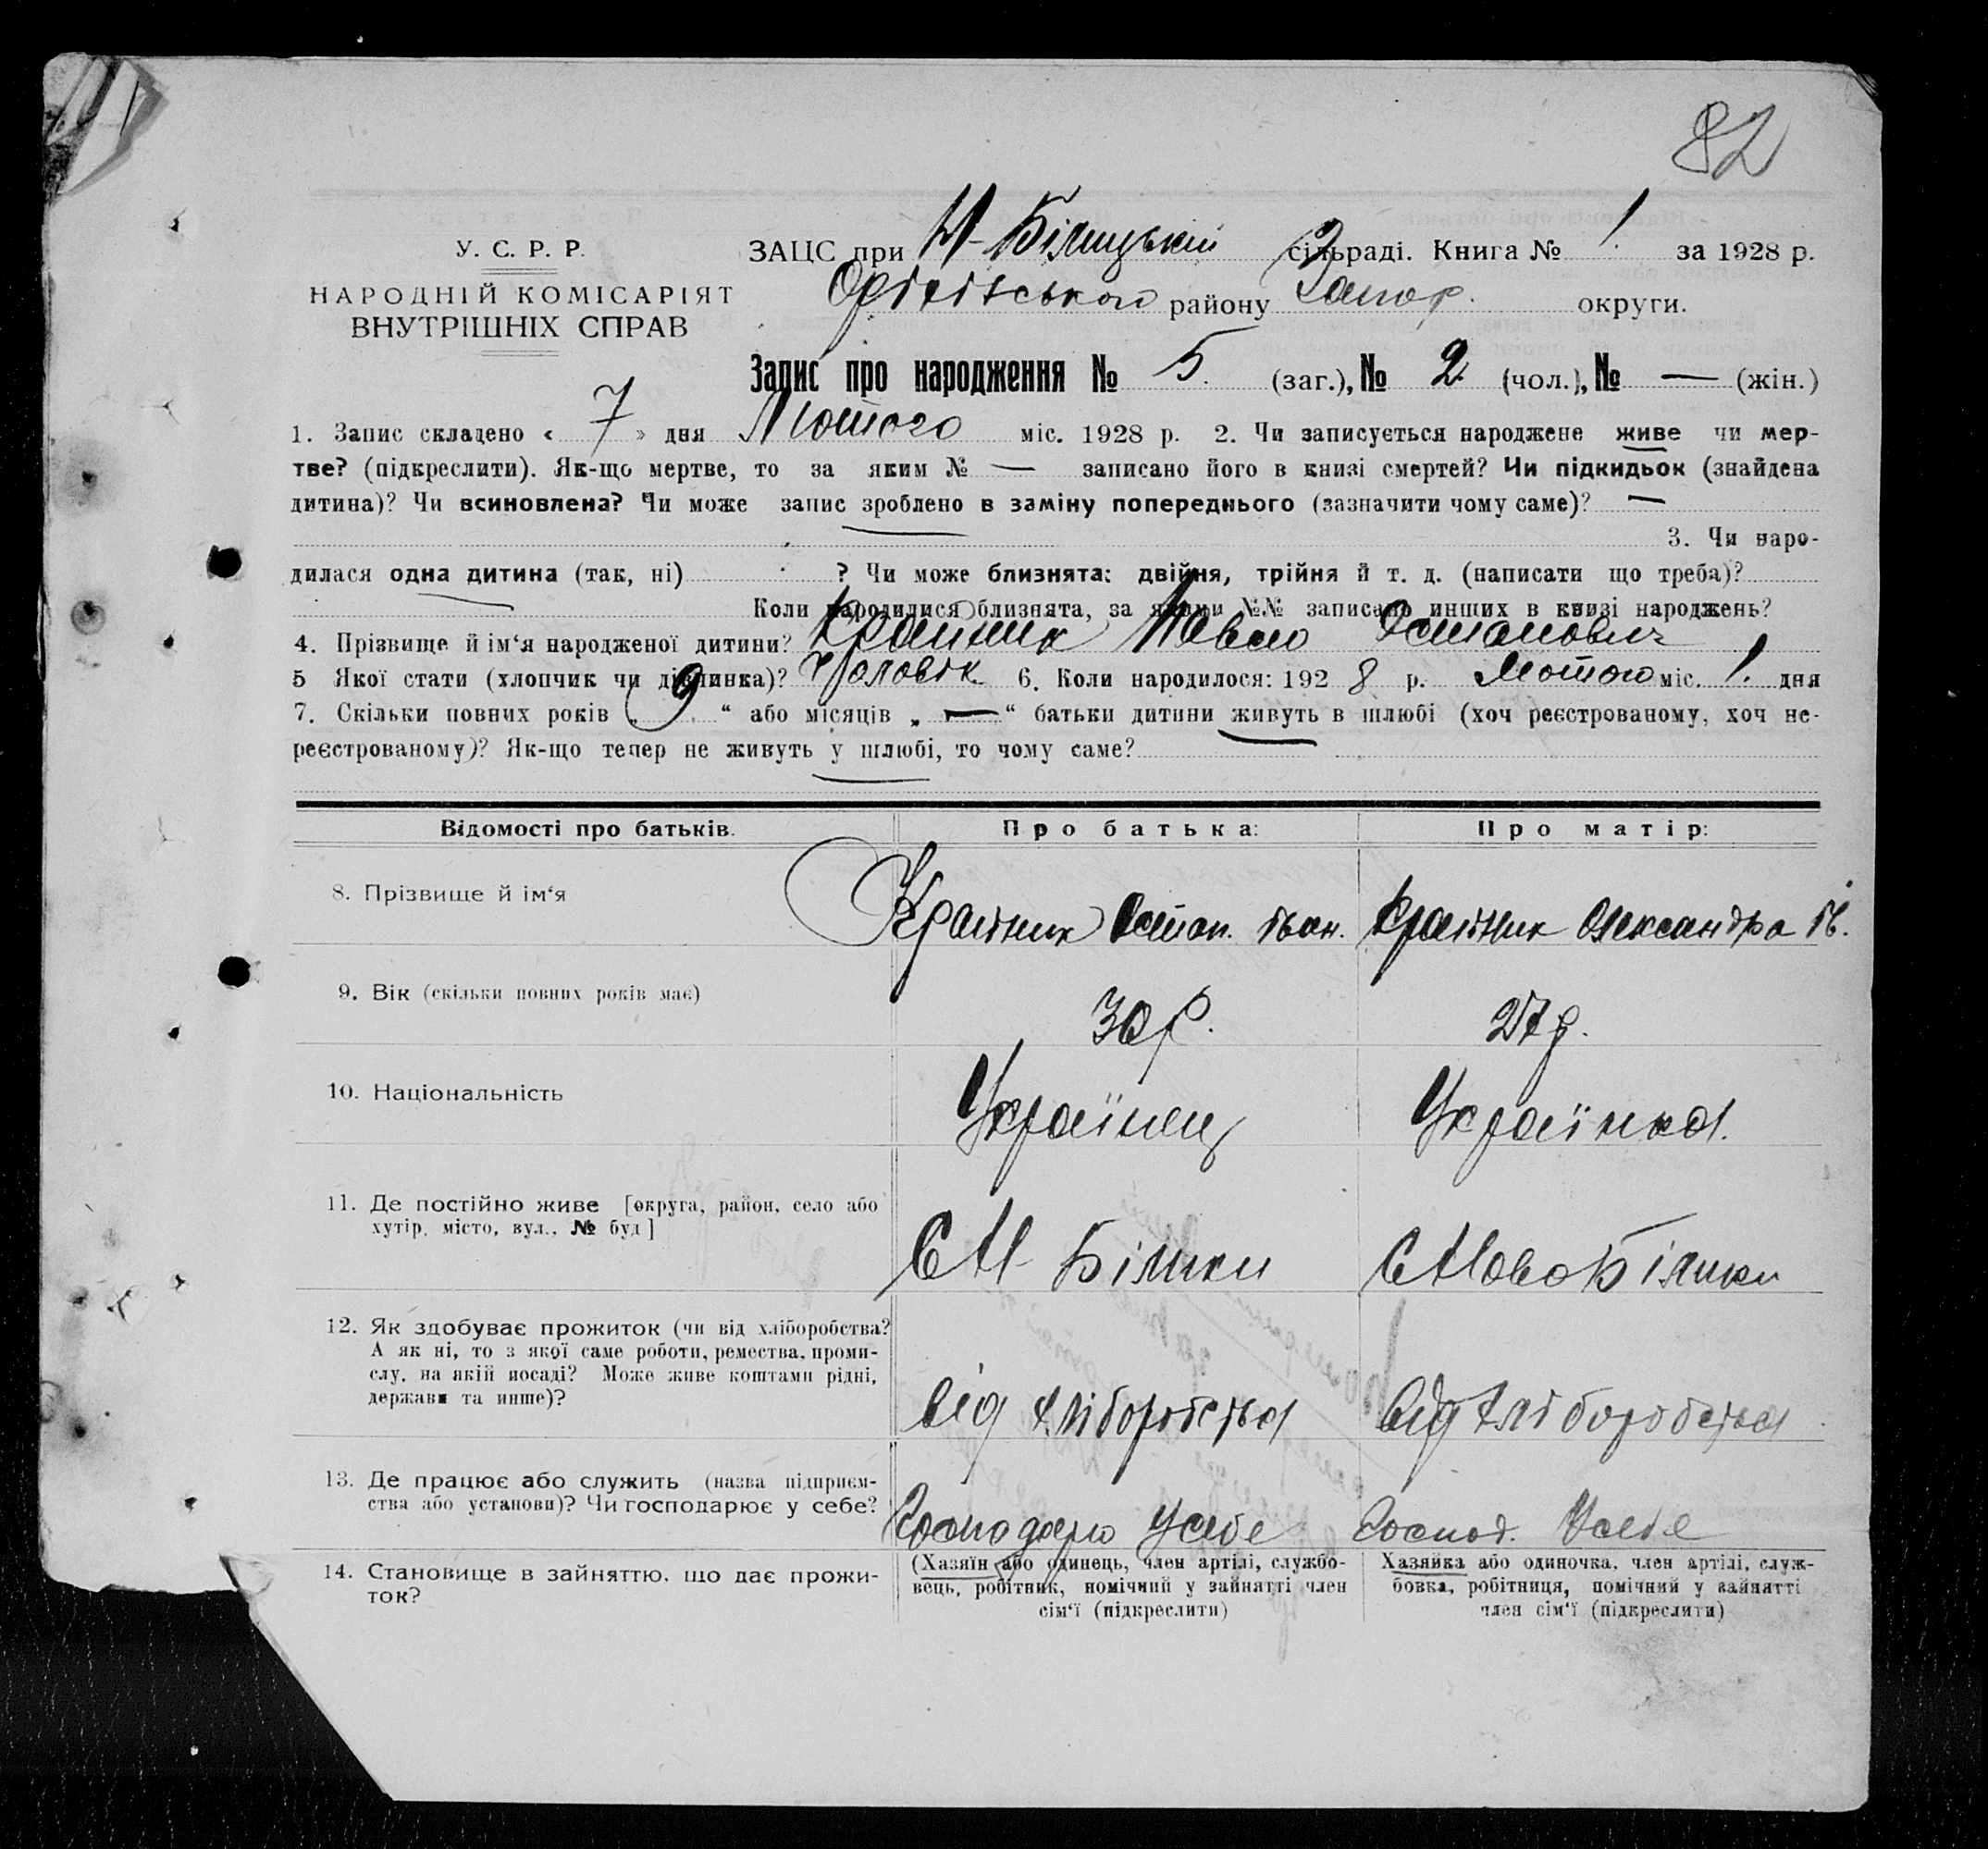 82
У. С. Р. Р.
НАРОДНІЙ КОМІСАРІЯТ
ВНУТРІШНІХ СПРАВ
ЗАЦС при Н-Білицькій сільраді. Книга № 1. за 1928 р.
Оріхівського району Запор. округи.
Запис про народження № 5. (заг.), № 2 (чол.), № — (жін.)
1. Запис складено « 7 » дня Лютого міс. 1928 р. 2. Чи записується народжене живе чи мер-
тве? (підкреслити). Як-що мертве, то за яким № — записано його в книзі смертей? Чи підкидьок (знайдена
дитина)? Чи всиновлена? Чи може запис зроблено в заміну попереднього (зазначити чому саме)? —
3. Чи наро-
дилася одна дитина (так, ні) ? Чи може близнята: двійня, трійня й т. д. (написати що треба)?
Коли народилися близнята, за якими №№ записано инших в книзі народжень?
4. Прізвище й ім‘я народженої дитини? Крайник Павло Остапович
5 Якої стати (хлопчик чи дівчинка)? Чоловік. 6. Коли народилося: 192 8 р. Лютого міс. 1. дня
7. Скільки повних років „ 9 “ або місяців „ — “ батьки дитини живуть в шлюбі (хоч реєстрованому, хоч не-
реєстрованому)? Як-що тепер не живуть у шлюбі, то чому саме?
Відомості про батьків. Про батька: Про матір:
8. Прізвище й ім‘я Крайник Остап. Іван. Крайник Олександра Ів.
9. Вік (скільки повних років має) 30 р. 27 р.
10. Національність Українец Українка.
11. Де постійно живе [округа, район, село або
хутір, місто, вул., № буд]
С Н- Білики С Ново Білики
12. Як здобуває прожиток (чи від хліборобства?
А як ні, то з якої саме роботи, ремества, проми-
слу, на якій посаді? Може живе коштами рідні,
держави та инше)?
Від хліборобства Від хліборобства
13. Де працює або служить (назва підприєм-
ства або установи)? Чи господарює у себе?
Господарю Усебе Господ. Усебе
14. Становище в зайняттю, що дає прожи-
ток?
(Хазяїн або одинець, член артілі, службо-
вець, робітник, помічний у зайнятті член
сім‘ї (підкреслити)
Хазяйка або одиночка, член артілі, служ-
бовка, робітниця, помічний у зайнятті
член сім‘ї (підкреслити)